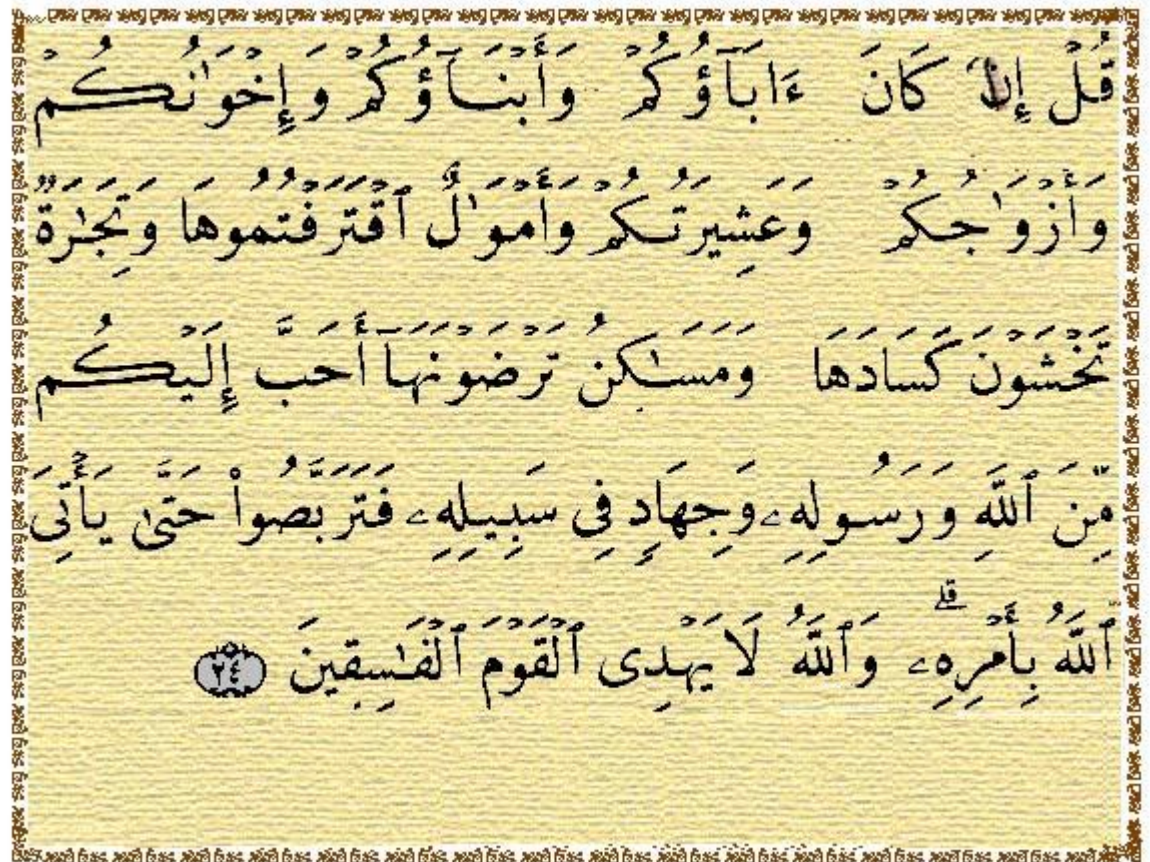 قُلْ إِن كَانَ ءَابَآؤُكُمْ وَأَبْنَآؤُكُمْ وَإِخْوَٰنُكُمْ
وَأَزْوَٰجُكُمْ وَعَشِيرَتُكُمْ وَأَمْوَٰلٌ ٱقْتَرَفْتُمُوهَا وَتِجَٰرَةٌ
تَخْشَوْنَ كَسَادَهَا وَمَسَٰكِنُ تَرْضَوْنَهَآ أَحَبَّ إِلَيْكُم
مِّنَ ٱللَّهِ وَرَسُولِهِۦ وَجِهَادٍ فِى سَبِيلِهِۦ فَتَرَبَّصُوا۟ حَتَّىٰ يَأْتِىَ
ٱللَّهُ بِأَمْرِهِۦ ۗ وَٱللَّهُ لَا يَهْدِى ٱلْقَوْمَ ٱلْفَٰسِقِينَ ٢٤